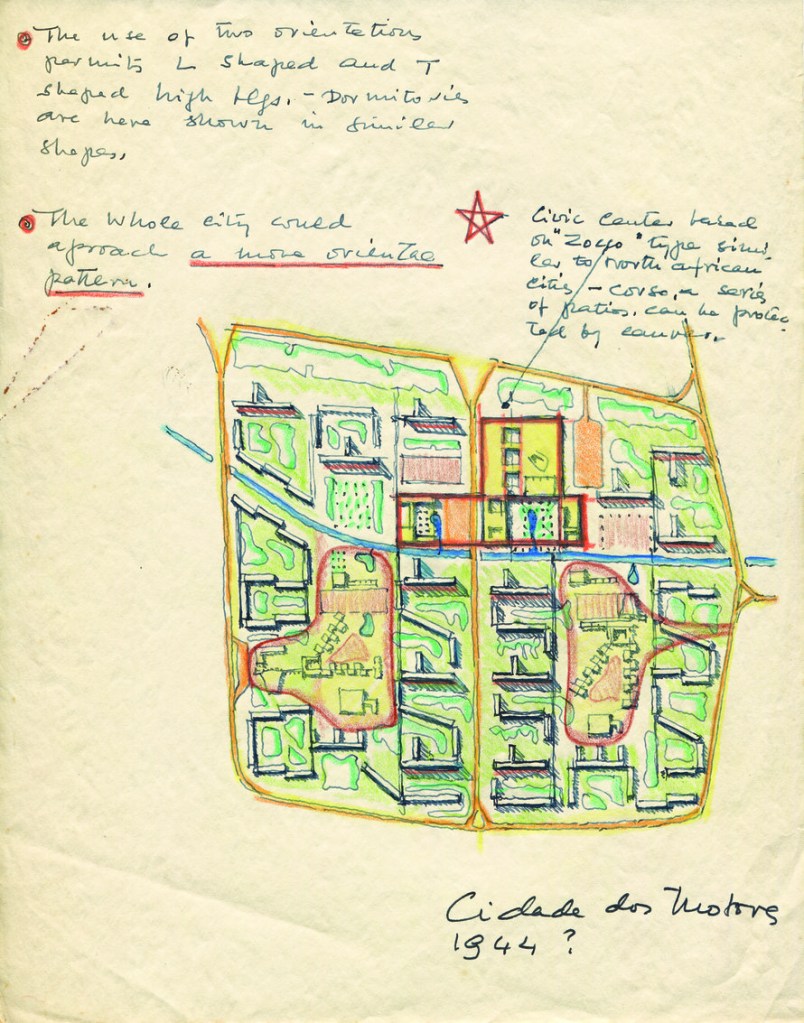 The use of two orientations
permits L shaped and T
shaped high blgs. - Dormitories
are here shown in similar
shapes.
The whole city could
aproach a more oriental
pattern.
Civic Center based
on "Zoco" type simi-
lar to north african
cities - corso, a series
of patios, can be protec-
ted by canvas.
Cidade dos Motores
1944 ?